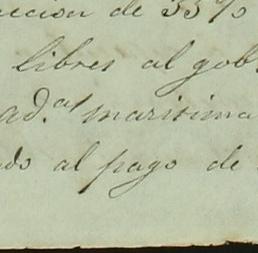 eccion de 33%
libres al gob
ad.ᵃˢ maritima
ado al pago de